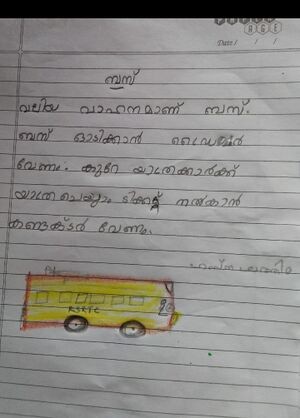 AGE
Date / / /
ബസ്
വലിയ വാഹനമാണ് ബസ്.
ബസ് ഓടിക്കാൻ ഡ്രൈവർ
വേണം. കുറേ യാത്രക്കാർക്ക്
യാത്ര ചെയ്യാം ടിക്കറ്റ് നൽകാൻ
കണ്ടക്ടർ വേണം.
KSRTC